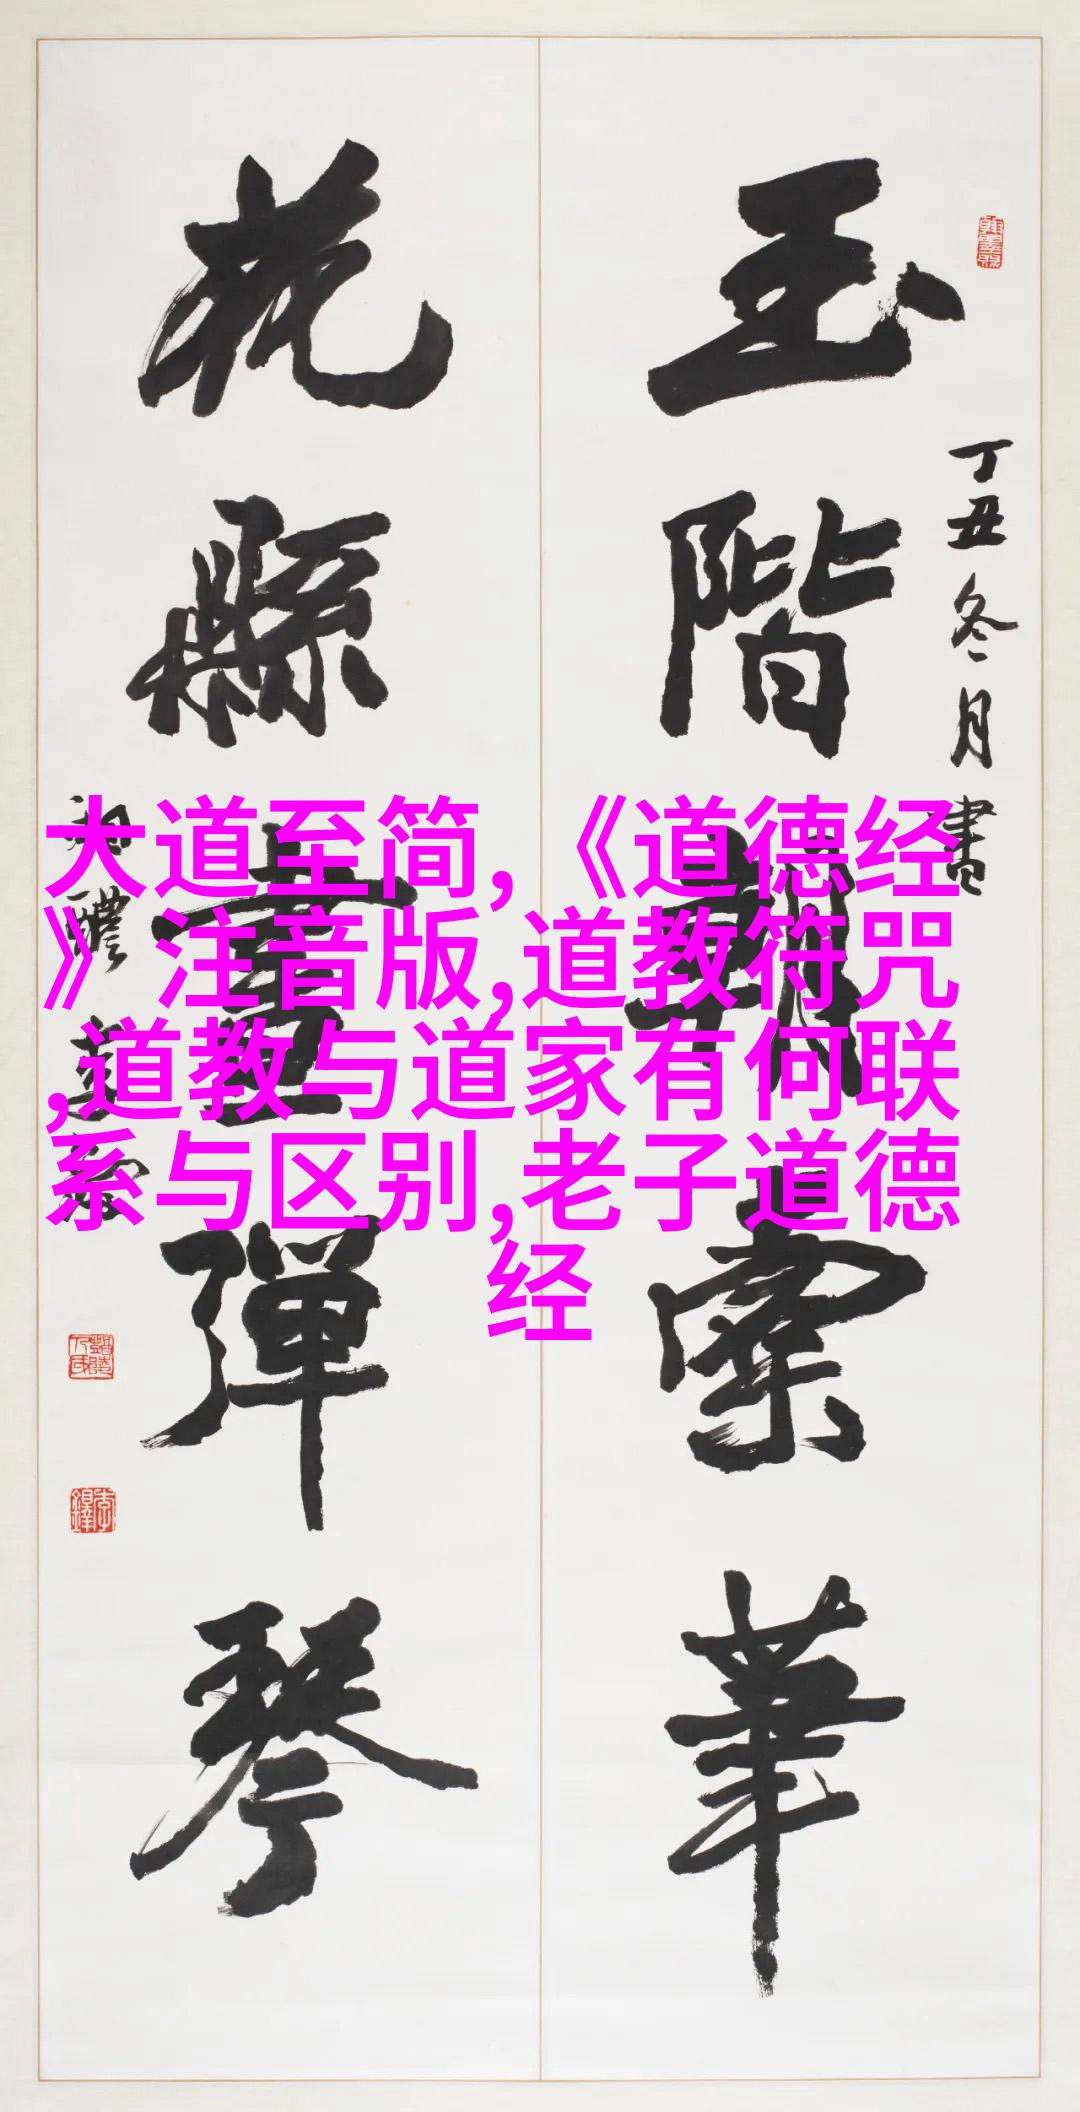 玉階朝
丁丑冬月書
花縣
彈琴
湘醴
大道至简,《道德经
》注音版,道教符咒
,道教与道家有何联
系与区别,老子道德
经